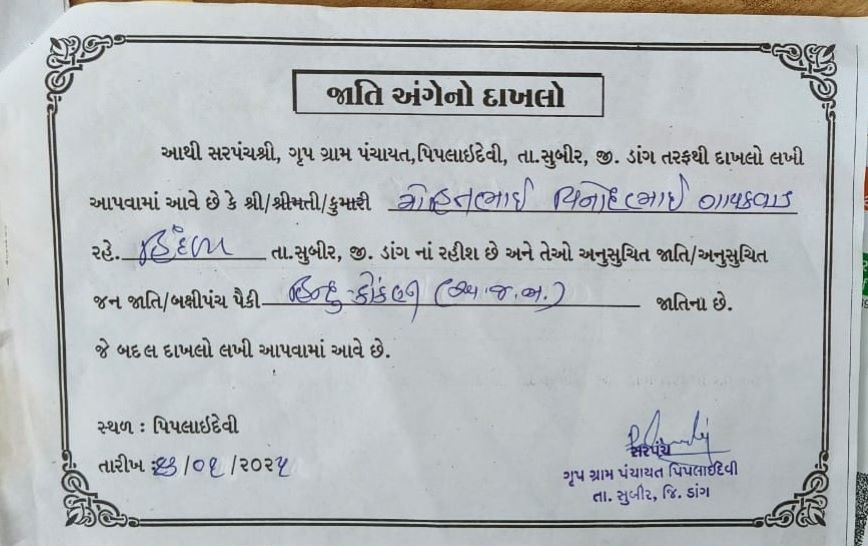 જાતિ અંગેનો દાખલો
આથી સરપંચશ્રી, ગૃપ ગ્રામ પંચાયત,પિપલાઇદેવી, તા.સુબીર, જી. ડાંગ તરફથી દાખલો લખી
આપવામાં આવે છે કે શ્રી/શ્રીમતી/કુમારી મોહનભાઈ વિનોદભાઈ ગાયકવાડ
રહે. હિંદળા તા.સુબીર, જી. ડાંગ નાં રહીશ છે અને તેઓ અનુસુચિત જાતિ/અનુસુચિત
જન જાતિ/બક્ષીપંચ પૈકી હિન્દુ-કોંકણી (અ.જ.જા.) જાતિના છે.
જે બદલ દાખલો લખી આપવામાં આવે છે.
સ્થળ : પિપલાઇદેવી
તારીખ : /૦૧/૨૦૨૫
સરપંચ
ગૃપ ગ્રામ પંચાયત પિપલાઈદેવી
તા. સુબીર, જિ. ડાંગ